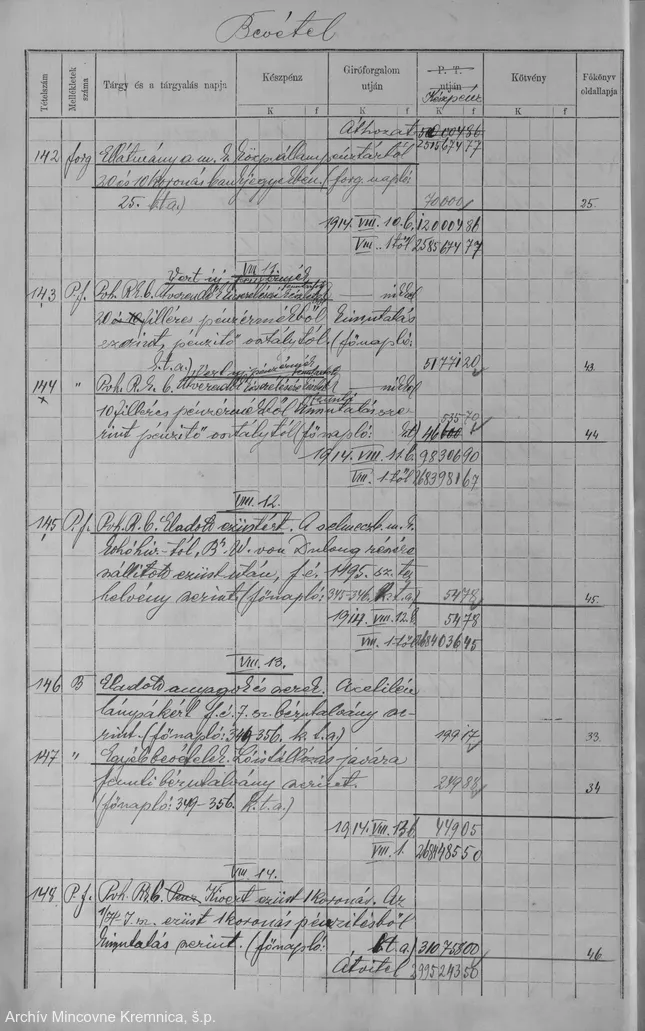 Bevétel
Tételszám
Mellékletek száma
Tárgy és a tárgyalás napja
Készpénz
Giróforgalom útján
P. T. útján
Készpénz
Kötvény
Főkönyv oldallapja
K f K f K f K f
Áthozat
2515674 77
142 forg Ellátmány a m. k. közp. állampénztártól
20 és 10 koronás bankjegyekben. (forg. napló:
25. k.t.a.) 70000 25
1914. VIII. 10. 120004 86
VIII. 1 től 2585674 77
VIII. 11.
143 P.f. Pvh. R.É.6. nickel
20 és 10 filléres pénzérmékből Kimutatás
szerint, pénzítő osztálytól. (főnapló:
k.t.a.) 51771 20 43
144 " Pvh. R.É.6. nickel
10 filléres pénzérmékből Kimutatás sze-
rint pénzítő osztálytól (főnapló: 44
1914. VIII. 11. 98306 90
VIII. 1 től 2683981 67
VIII. 12.
145 P.f. Pvh. R.6. Eladott ezüstért. A selmeczb. m. k.
részére
szállított ezüst után, f. é. 1495. sz. te-
helvény szerint (főnapló: 345-346. k.t.a.) 54 78 45.
1914. VIII. 12. 54 78
VIII. 1 től 2684036 45
VIII. 13.
146 B Eladott anyagok és szerek. Acetilén
lámpákért f. é. 7. sz. bérutalvány sze-
rint. (főnapló: 349-356. k.t.a) 199 17 33.
147 " Egyéb bevételek. javára
fenti bérutalvány szerint. 249 88 34
(főnapló: 349-356. k.t.a.)
1914. VIII. 13 449 05
VIII. 1. 2684485 50
VIII. 14.
148 P.f. Pvh. R.6. Kivert ezüst 1 koronás. Az
ezüst 1 koronás pénzítésből
Kimutatás szerint. (főnapló: k.t.a.) 310758 00 46
Átvitel 2995243 50
Archív Mincovne Kremnica, š.p.